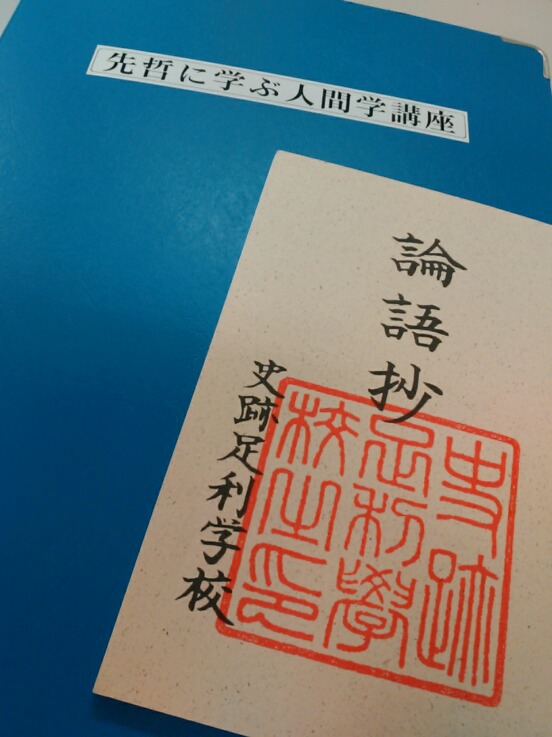 先哲に学ぶ人間学講座
論語抄
史跡足利学校
史跡
足利學
校之印